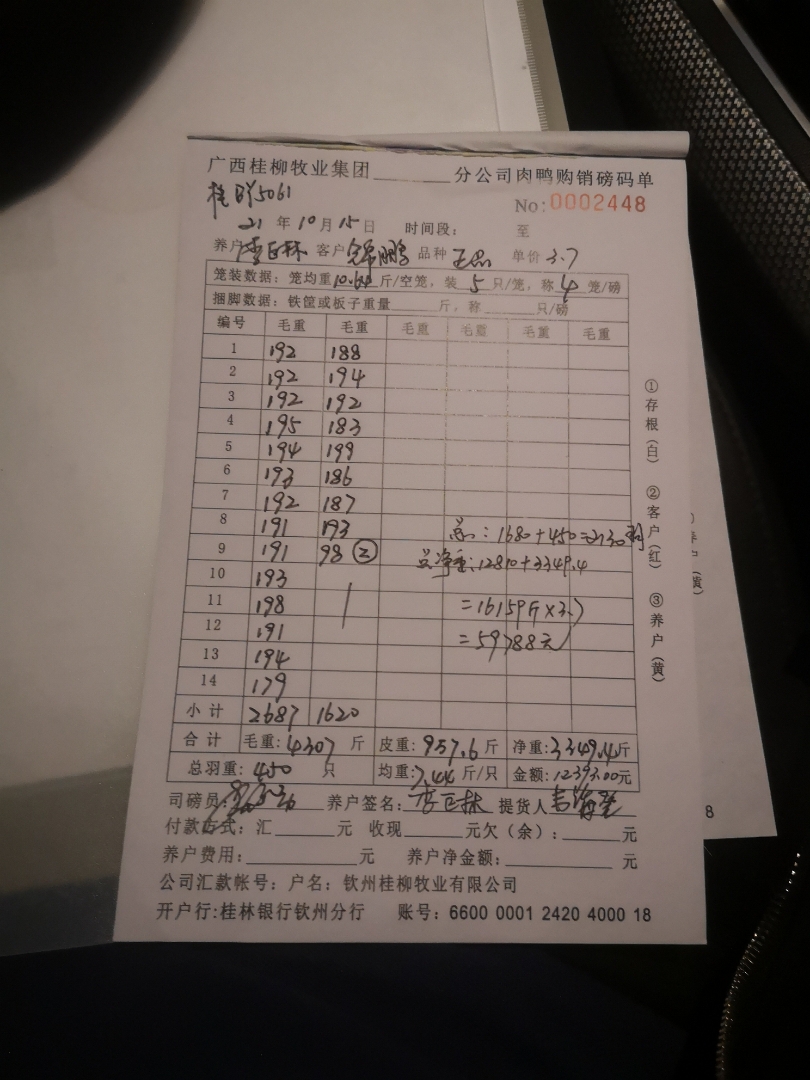 广西桂柳牧业集团 分公司肉鸭购销磅码单
桂 5061 No:0002448
21 年 10 月 15 日 时间段: 至
养户 李正林 客户 鹏 品种 王品 单价 3.7
笼装数据: 笼均重10.64斤/空笼, 装 5 只/笼, 称 4 笼/磅
捆脚数据: 铁筐或板子重量 斤, 称 只/磅
编号 毛重 毛重 毛重 毛重 毛重 毛重
1 192 188
2 192 194
3 192 192
4 195 183
5 194 199
6 193 186
7 192 187
8 191 193 总: 1680+450=2130羽
9 191 98 ② 总净重: 12810+3349.4
10 193
11 198 =16159斤×3.7
12 191 =59788元
13 194
14 179
小计 2687 1620
合计 毛重: 4307 斤 皮重: 957.6 斤 净重: 3349.4斤
总羽重: 450 只 均重: 7.44 斤/只 金额: 12393.00元
司磅员: 养户签名: 李正林 提货人
付款方式: 汇 元 收现 元欠(余): 元
养户费用: 元 养户净金额: 元
公司汇款帐号: 户名: 钦州桂柳牧业有限公司
开户行:桂林银行钦州分行 账号: 6600 0001 2420 4000 18
①存根(白) ②客户(红) ③养户(黄)
户(黄)
8